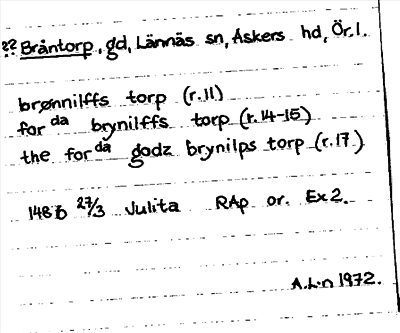 ?? Bråntorp, gd, Lännäs sn, Askers hd, Ör.l.
brønnilffs torp (r.11)
for da brynilffs torp (r.14-15)
the for da godz brynilps torp (r.17)
27/3 Julita RAp or. Ex 2.
A.L-n 1972.